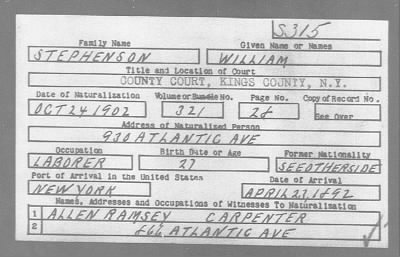 S315
Family Name Given Name or Names
STEPHENSON WILLIAM
Title and Location of Court
COUNTY COURT, KINGS COUNTY, N.Y.
Date of Naturalization Volume or Bundle No. Page No. Copy of Record No.
OCT 24 1902 321 28 See Over
Address of Naturalized Person
930 ATLANTIC AVE
Occupation Birth Date or Age Former Nationality
LABORER 27 SEE OTHERSIDE
Port of Arrival in the United States Date of Arrival
NEW YORK APRIL 23, 1892
Names, Addresses and Occupations of Witnesses To Naturalization
1 ALLEN RAMSEY CARPENTER
2 866 ATLANTIC AVE